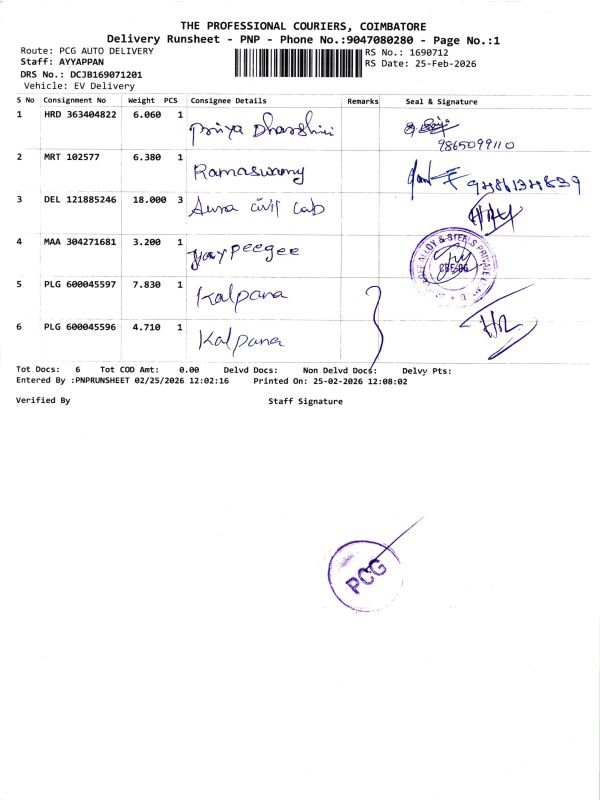 THE PROFESSIONAL COURIERS, COIMBATORE
Delivery Runsheet - PNP - Phone No.:9047080280 - Page No.:1
Route: PCG AUTO DELIVERY
RS No.: 1690712
Staff: AYYAPPAN
RS Date: 25-Feb-2026
DRS No.: DCJB169071201
Vehicle: EV Delivery
S No Consignment No Weight PCS Consignee Details Remarks Seal & Signature
1 HRD 363404822 6.060 1 Priya Dharshini
9865099110
2 MRT 102577 6.380 1 Ramaswamy
3 DEL 121885246 18.000 3 Aura civil Lab
4 MAA 304271681 3.200 1 Jaypeegee
ALLOY & STEELS PRIVATE
5 PLG 600045597 7.830 1 Kalpana
6 PLG 600045596 4.710 1 Kalpana
Tot Docs: 6 Tot COD Amt: 0.00 Delvd Docs: Non Delvd Docs: Delvy Pts:
Entered By :PNPRUNSHEET 02/25/2026 12:02:16 Printed On: 25-02-2026 12:08:02
Verified By Staff Signature
PCG